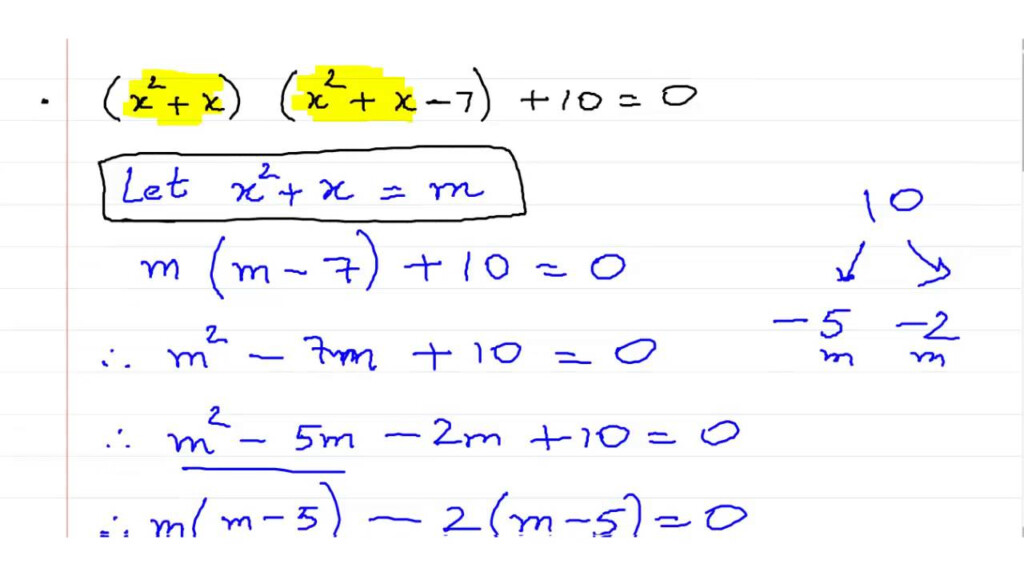 . (x² + x) (x² + x - 7) + 10 = 0
Let x² + x = m
m (m - 7) + 10 = 0
∴ m² - 7m + 10 = 0
∴ m² - 5m - 2m + 10 = 0
∴ m(m - 5) - 2(m - 5) = 0
10
↙ ↘
-5 -2
m m